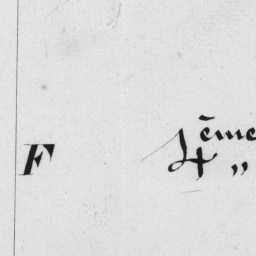 F 4ème „